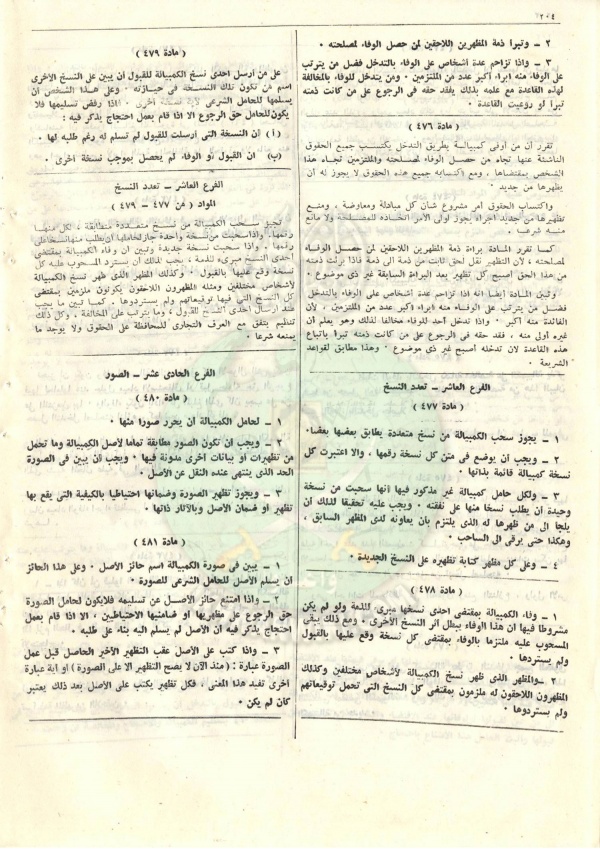 ٢٠٤
٢ ــ وتبرا ذمة المظهرين اللاحقين لمن حصل الوفاء لمصلحته ٠
٣ ــ واذا تزاحم عدة أشخاص على الوفاء بالتدخل فضل من يترتب
على الوفاء منه ابراء أكبر عدد من الملتزمين ٠ ومن يتدخل للوفاء بالمخالفة
لهذه القاعدة مع علمه بذلك يفقد حقه في الرجوع على من كانت ذمته
تبرأ لو روعيت القاعدة ٠
( مادة ٤٧٦ )
تقرر أن من أوفى كمبيالة بطريق التدخل يكتسب جميع الحقوق
الناشئة عنها تجاه من حصل الوفاء لمصلحته والملتزمين تجاه هذا
الشخص بمقتضاها ، ومع اكتسابه جميع هذه الحقوق لا يجوز له أن
يظهرها من جديد ٠
واكتساب الحقوق امر مشروع شأن كل مبادلة ومعاوضة ، ومنع
تظهيرها من جديد اجراء يجوز لولى الأمر اتخاذه للمصلحة ولا مانع
منه شرعا ٠
كما تقرر المادة براءة ذمة المظهرين اللاحقين لمن حصل الوفاء
لمصلحته ، لأن التظهير نقل لحق ثابت من ذمة الى ذمة فاذا برئت ذمته
من هذا الحق أصبح كل تظهير بعد البراءة السابقة غير ذى موضوع ٠
وتبين المادة أيضا انه اذا تزاحم عدة أشخاص على الوفاء بالتدخل
فضل من يترتب على الوفاء منه ابراء اكبر عدد من الملتزمين ، لأن
الفائدة منه أكبر ٠ واذا تدخل أحد للوفاء مخالفا لذلك وهو يعلم أن
غيره أولى منه ، فقد حقه فى الرجوع على من كانت ذمته تبرأ باتباع
هذه القاعدة لان تدخله أصبح غير ذى موضوع ٠ وهذا مطابق لقواعد
الشريعة ٠
الفرع العاشر ــ تعدد النسخ
( مادة ٤٧٧ )
١ ــ يجوز سحب الكمبيالة من نسخ متعددة يطابق بعضها بعضا ٠
٢ ــ ويجب أن يوضع فى متن كل نسخة رقمها ، والا اعتبرت كل
نسخة كمبيالة قائمة بذاتها ٠
٣ ــ ولكل حامل كمبيالة غير مذكور فيها أنها سحبت من نسخة
وحيدة أن يطلب نسخا منها على نفقته ٠ ويجب عليه تحقيقا لذلك أن
يلجأ الى من ظهرها له الذى يلتزم بأن يعاونه لدى المظهر السابق ،
وهكذا حتى يرقى الى الساحب ٠
٤ ــ وعلى كل مظهر كتابة تظهيره على النسخ الجديدة ٠
( مادة ٤٧٨ )
١ ــ وفاء الكمبيالة بمقتضى احدى نسخها مبرىء للذمة ولو لم يكن
مشروطا فيها أن هذا الوفاء يبطل أثر النسخ الأخرى ٠ ومع ذلك يبقى
المسحوب عليه ملتزما بالوفاء بمقتضى كل نسخة وقع عليها بالقبول
ولم يستردها ٠
٢ ــ والمظهر الذى ظهر نسخ الكمبيالة لأشخاص مختلفين وكذلك
المظهرون اللاحقون له ملزمون بمقتضى كل النسخ التى تحمل توقيعاتهم
ولم يستردوها ٠
( مادة ٤٧٩ )
على من أرسل احدى نسخ الكمبيالة للقبول أن يبين على النسخ الأخرى
اسم من تكون تلك النسخة فى حيازته ٠ وعلى هذا الشخص أن
يسلمها للحامل الشرعى لأية نسخة أخرى ٠ فاذا رفض تسليمها فلا
يكون للحامل حق الرجوع الا اذا قام بعمل احتجاج يذكر فيه :
( أ ) أن النسخة التى أرسلت للقبول لم تسلم له رغم طلبه لها ٠
( ب ) ان القبول أو الوفاء لم يحصل بموجب نسخة أخرى ٠
الفرع العاشر ــ تعدد النسخ
المواد ( من ٤٧٧ ــ ٤٧٩ )
تجيز سحب الكمبيالة من نسخ متعددة متطابقة ، لكل منها
رقمها ٠ واذا سحبت من نسخة واحدة جاز لحاملها أن يطلب منها نسخا على
نفقته ٠ واذا سحبت نسخة جديدة وتبين أن وفاء الكمبيالة بمقتضى
احدى النسخ مبرىء للذمة ، يجب لمالك أن يسترد المسحوب عليه كل
نسخة وقع عليها بالقبول ٠ وكذلك المظهر الذى ظهر نسخ الكمبيالة
لأشخاص مختلفين ومثله المظهرون اللاحقون يكونون ملزمين بمقتضى
كل النسخ التى فيها توقيعاتهم ولم يستردوها ٠ كما تبين ما يجب
عند ارسال احدى النسخ للقبول ، وما يترتب على المخالفة ، وكل ذلك
تنظيم يتفق مع العرف التجارى للمحافظة على الحقوق ولا يوجد ما
يمنعه شرعا ٠
الفرع الحادى عشر ــ الصور
( مادة ٤٨٠ )
١ ــ لحامل الكمبيالة أن يحرر صورا منها ٠
٢ ــ ويجب أن تكون الصور مطابقة تماما لأصل الكمبيالة وما تحمل
من تظهيرات أو بيانات أخرى مدونة فيها ٠ ويجب أن يبين فى الصورة
الحد الذى ينتهى عنده النقل عن الأصل ٠
٣ ــ ويجوز تظهير الصورة وضمانها احتياطيا بالكيفية التى يقع بها
تظهير أو ضمان الأصل وبالآثار ذاتها ٠
( مادة ٤٨١ )
١ ــ يبين فى صورة الكمبيالة اسم حائز الأصل ٠ وعلى هذا الحائز
أن يسلم الأصل للحامل الشرعى للصورة ٠
٢ ــ واذا امتنع حائز الأصل عن تسليمه فلا يكون لحامل الصورة
حق الرجوع على مظهريها أو ضامنيها الاحتياطيين ، الا اذا قام بعمل
احتجاج يذكر فيه أن الأصل لم يسلم اليه بناء على طلبه ٠
٣ ــ واذا كتب على الأصل عقب التظهير الأخير الحاصل قبل عمل
الصورة عبارة : ( منذ الآن لا يصح التظهير الا على الصورة ) أو أية عبارة
أخرى تفيد هذا المعنى ، فكل تظهير يكتب على الأصل بعد ذلك يعتبر
كأن لم يكن ٠